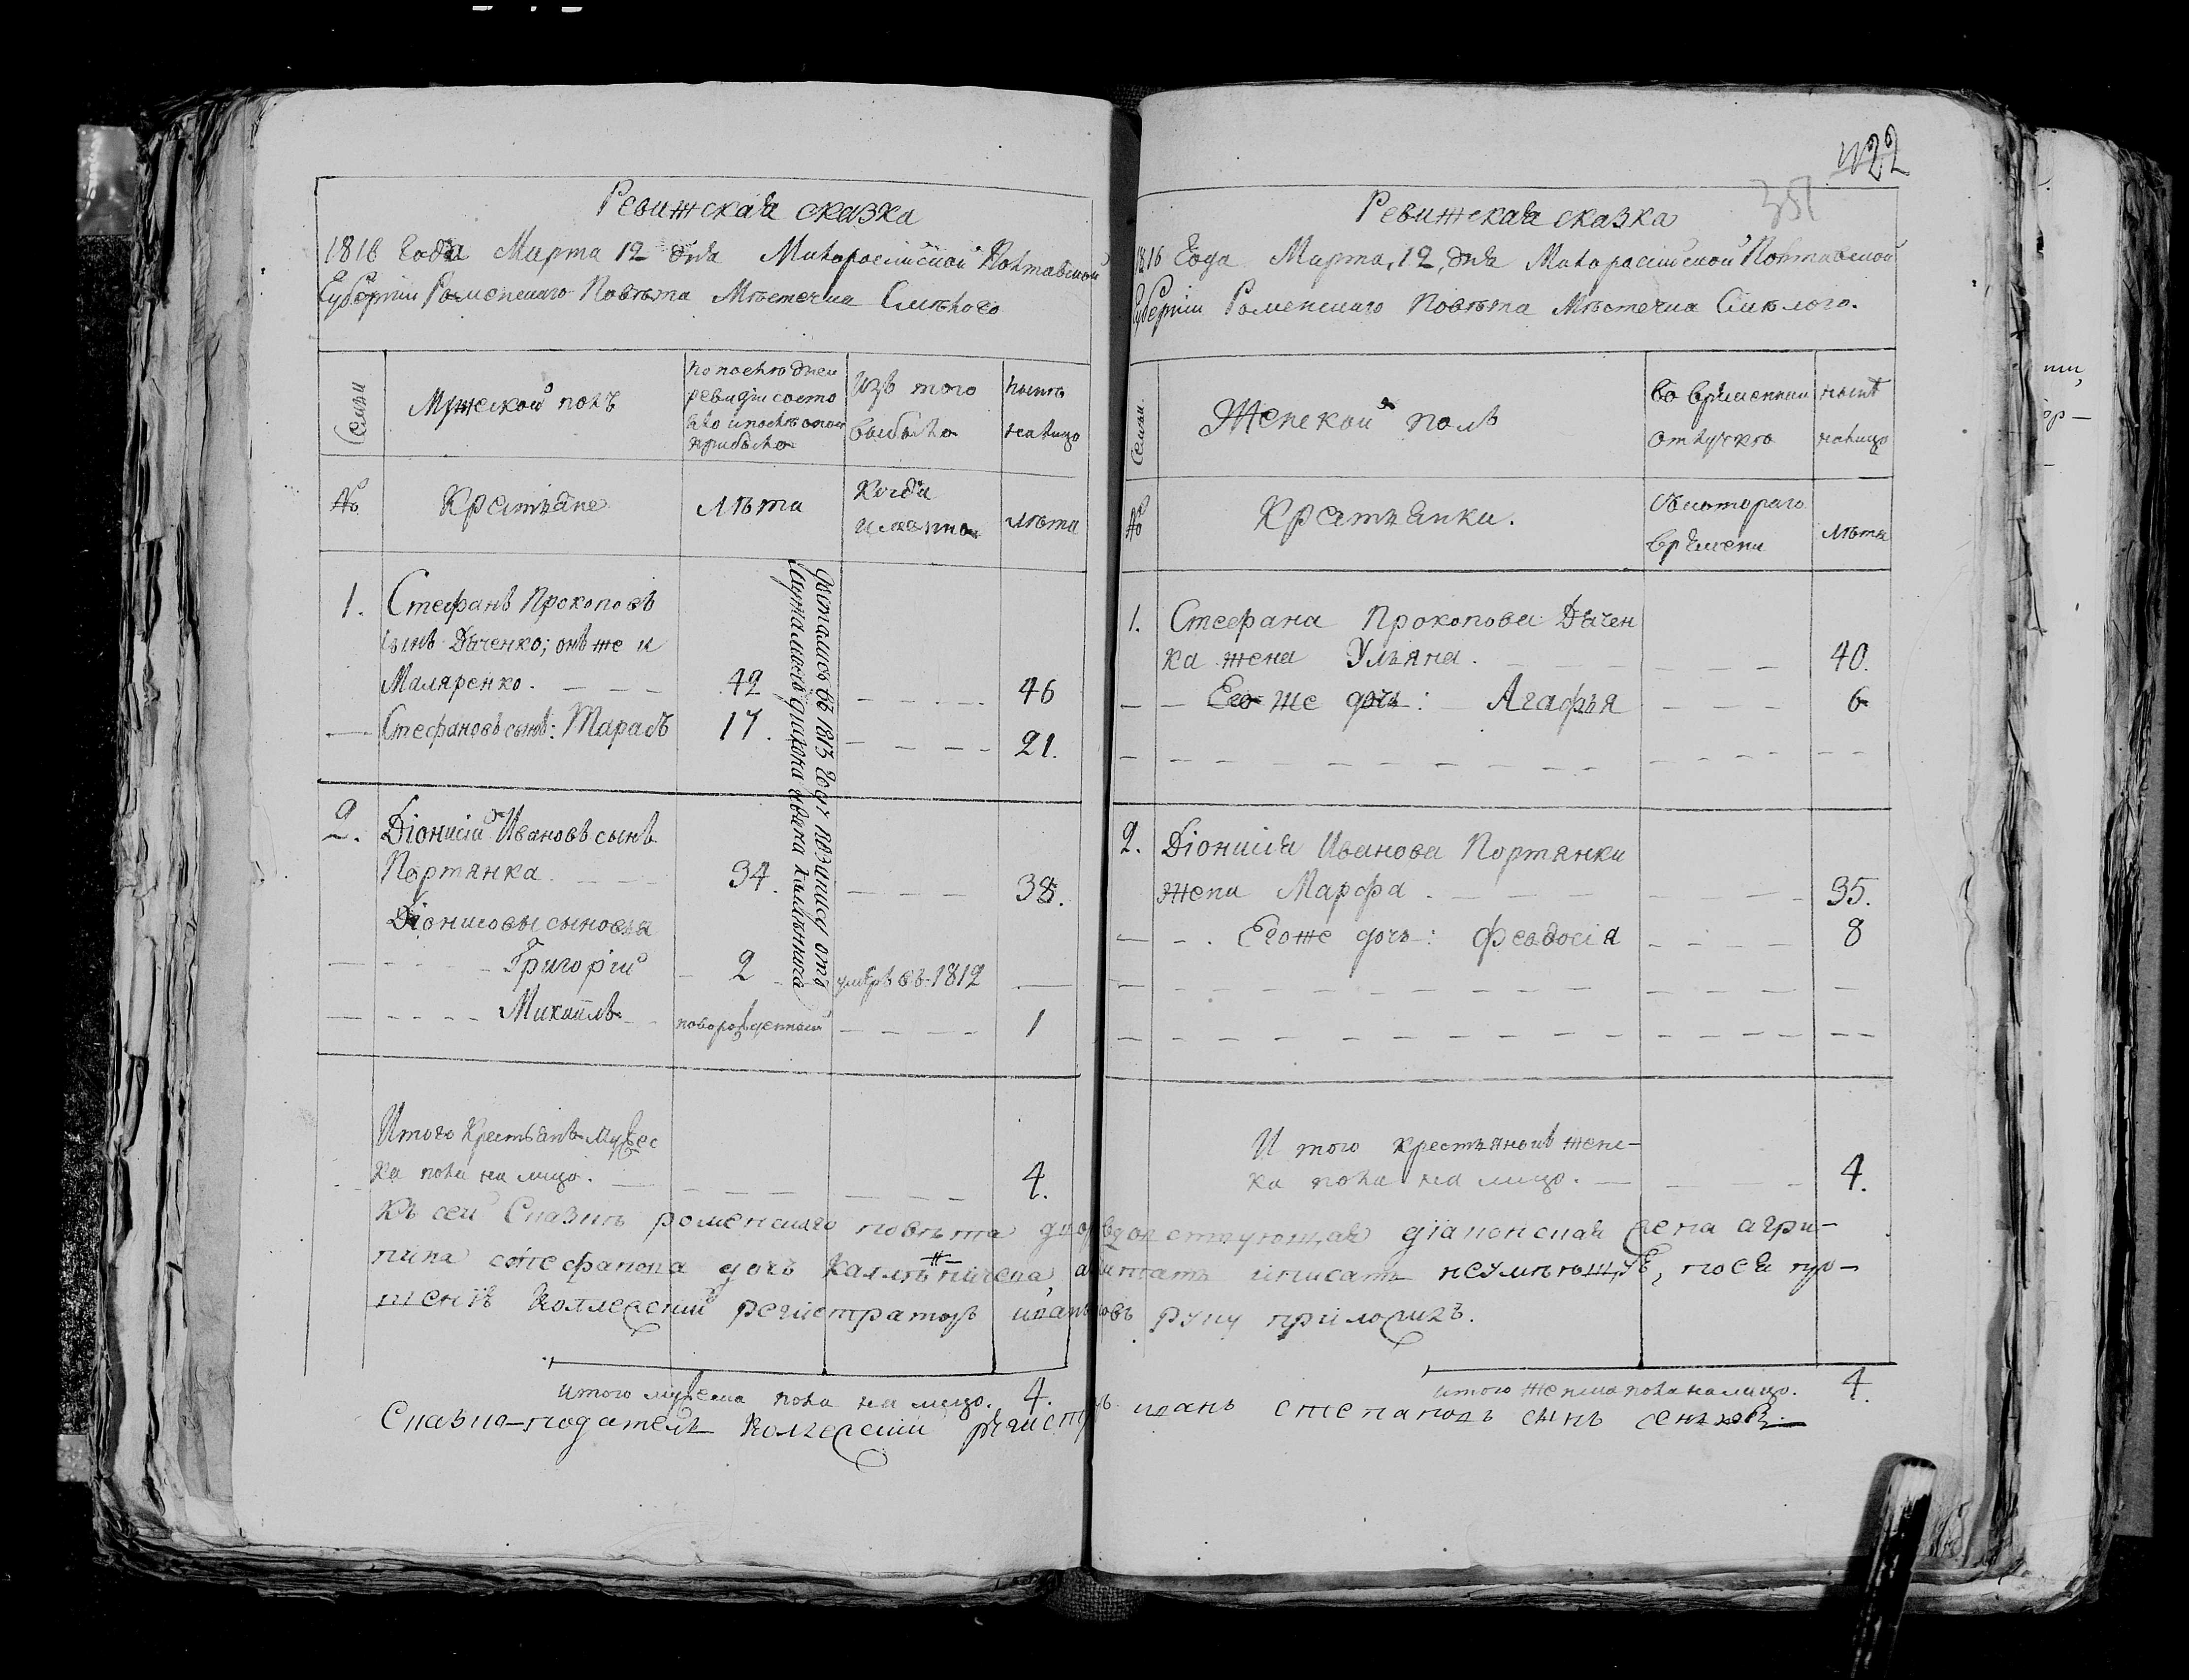 Ревижская сказка
1816 Года Марта 12 дня Малороссiйской Полтавской
Губернiи Роменскаго Повѣта Мѣстечка Смѣлого
Семьи
Мужеской полъ
по послѣдней
ревизiи состо
яло и послѣ оной
прибыло
Изъ того
выбыло
нынѣ
налицо
№
Крестьяне
лѣта
Когда
именно
лѣта
1. Стефанъ Прокоповъ
сынъ Дяченко; онъ же и
Маляренко. 42 46
Стефановъ сынъ: Тарасъ 17. 21.
Достались въ 1813 году по записи отъ
дiякона Калѣнича
2. Дiонисiй Ивановъ сынъ
Портянка 34. 38.
Дiонисовы сыновья
Григорiй 2 умеръ въ 1812
Михаилъ новорожденный 1
Итого Крестьянъ мужес
ка пола на лицо. 4.
422
351
Ревижская сказка
1816 Года Марта, 12, дня Малороссiйской Полтавской
Губернiи Роменскаго Повѣта Мѣстечка Смѣлого.
Семьи
Женской полъ
во временной
отлучкѣ
нынѣ
налицо
№
Крестьянки.
Съ котораго
времени
лѣта
1. Стефана Прокопова Дячен
ка жена Ульяна. 40.
Его же дочь: Агафья 6
2. Дiонисiя Иванова Портянки
жена Марфа 35.
Его же дочь: Феодосiя 8
И того крестьянокъ женс-
ка пола на лицо. 4.
Къ сей Сказкѣ роменскаго повѣта дiаконская жена агри-
пина стефанова дочь Калѣничева, а читать и писать неумѣющуе, по ея про-
шенiѣ Коллежскiй регистраторъ руку приложилъ.
итого мужеска пола на лицо. 4.
итого женска пола налицо. 4
Сказко-податель Коллежскiй регистръ иванъ степановъ сынъ